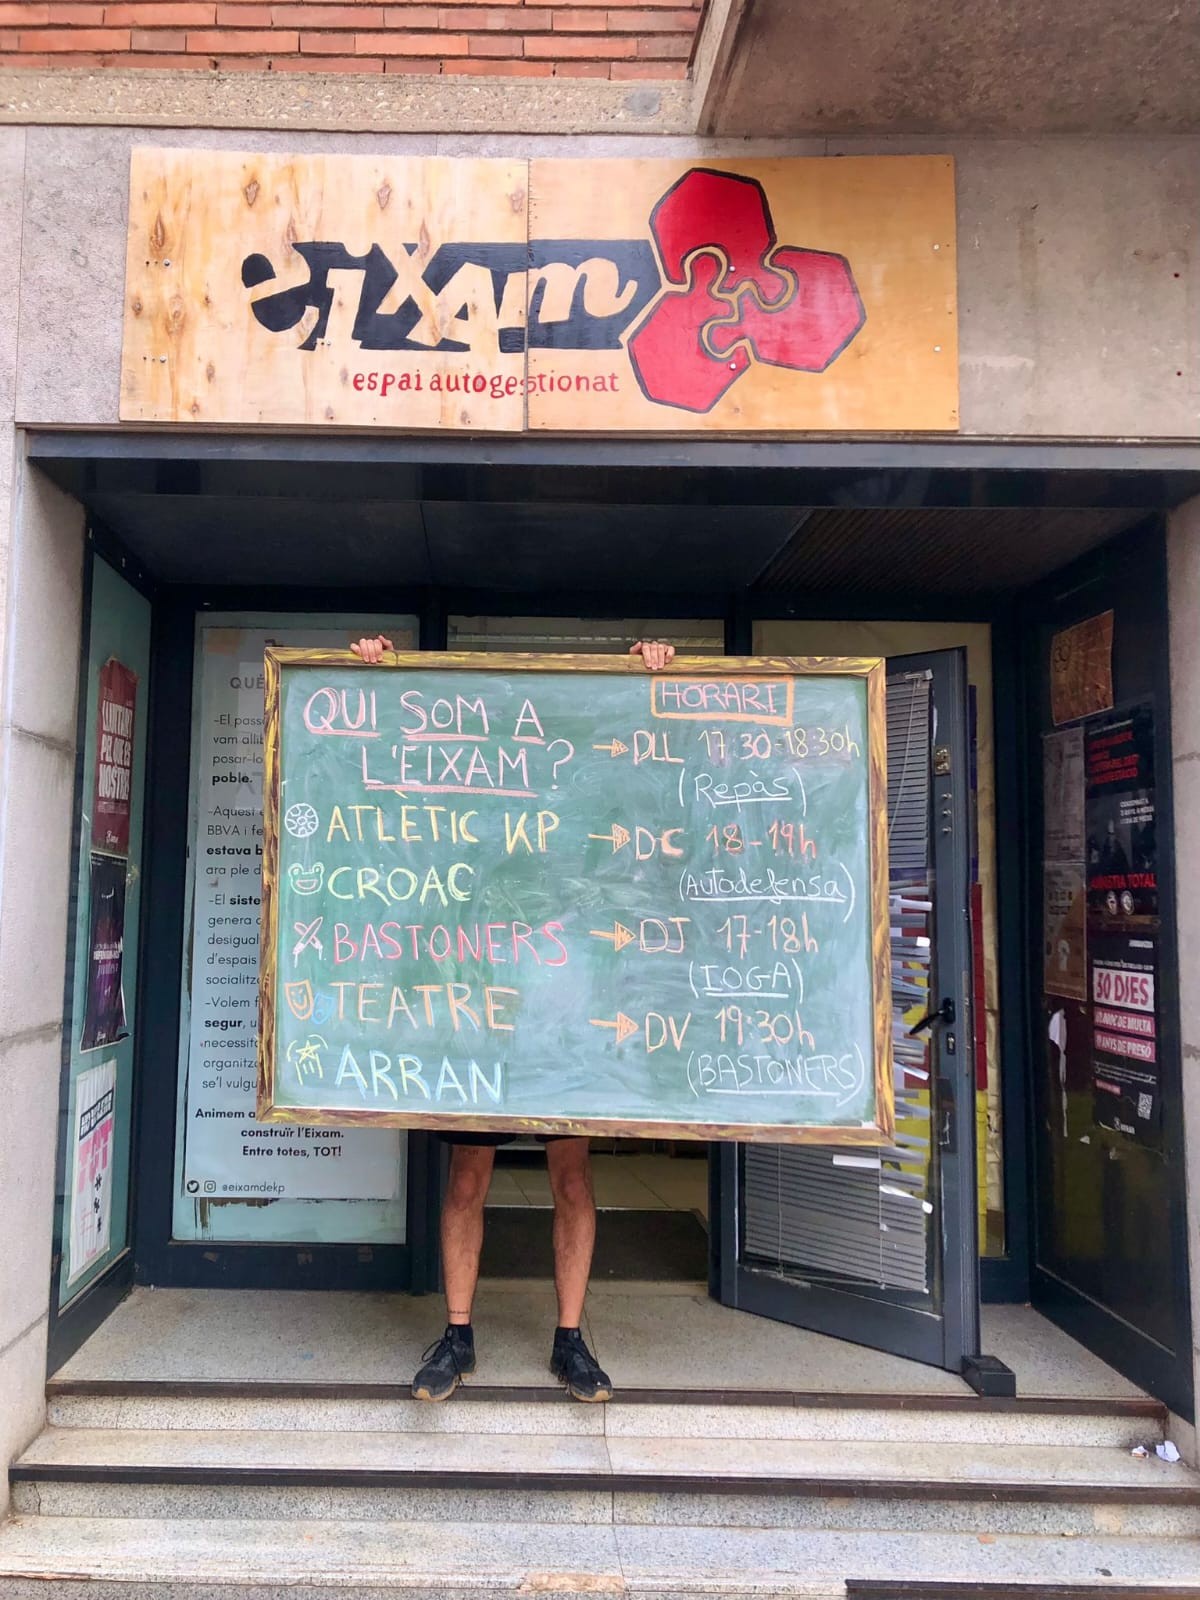 eixam
espai autogestionat
QUI SOM A
L'EIXAM?
ATLÈTIC KP
CROAC
BASTONERS
TEATRE
ARRAN
HORARI
DLL 17:30-18:30h
(Repàs)
DC 18-19h
(Autodefensa)
DJ 17-18h
(IOGA)
DV 19:30h
(BASTONERS)
QUÈ
-El pass
vam alli
posar-lo
poble.
-Aquest e
BBVA i fe
estava b
ara ple d
-El siste
genera d
desigual
d'espais
socialitz
-Volem f
segur, u
necessit
organitz
se'l vulgu
Animem a
construïr l'Eixam.
Entre totes, TOT!
@eixamdekp
PEL QUE ÉS
NOSTRE
AMNISTIA TOTAL
30 DIES
DE MULTA
ANYS DE PRESÓ